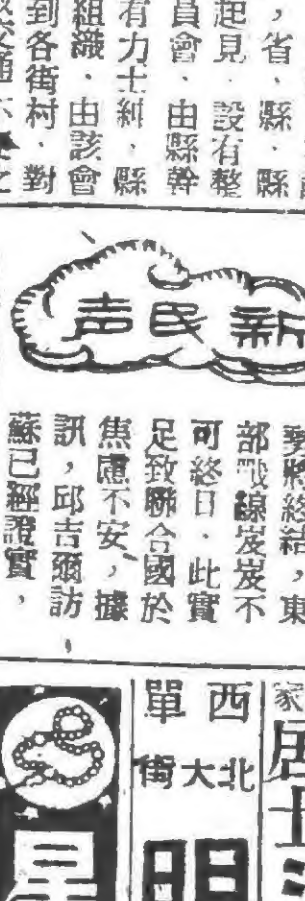 ，省、縣、縣
起見、設有整
員會、由縣幹
有力士糾、縣
組識、由該會
到各街村、對
新民声
要將終結，東
部戰線岌岌不
可終日、此實
足致聯合國於
焦慮不安，據
訊，邱吉爾訪
蘇已經證實，
家
居士
西單
北大街
明
星